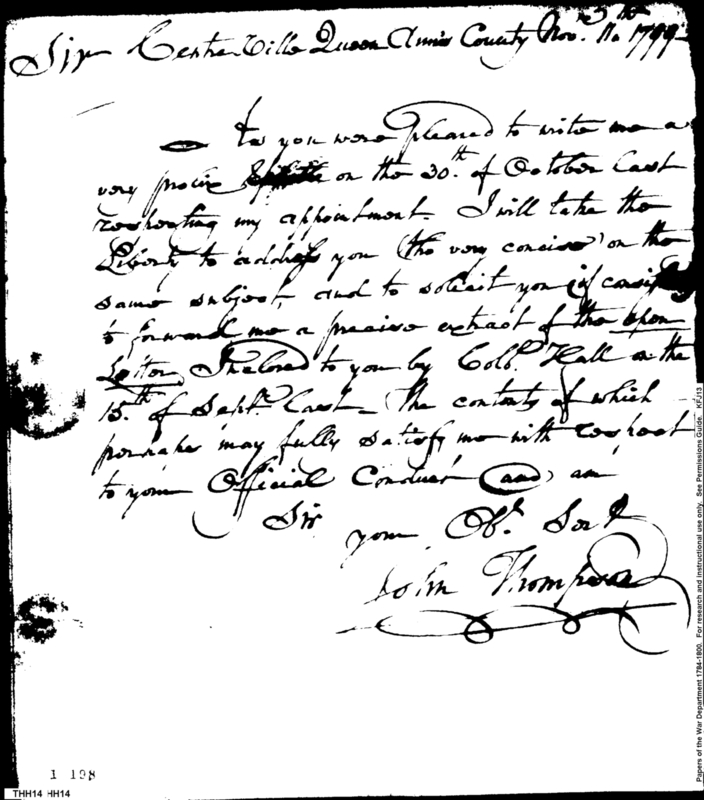 Sir Centre Ville Queen Ann's County Nov. 1799
As you were pleased to write me a
very on the 30.th of October Last
respecting my appointment. I will take the
Liberty to address you (tho very concise) on the
same subject, and to solicit you if
to forward me a precise extract of the open
Letter, Inclosed to you by Colo. Hall on the
15.th of Sept. Last. The contents of which
perhaps may fully satisfy me with respect
to your Official Conduct (and) am
Sir
your Ob.t Ser.t
John Thompson
1 198
THH14 HH14
Papers of the War Department 1784-1800. For research and instructional use only. See Permissions Guide. KFJ13